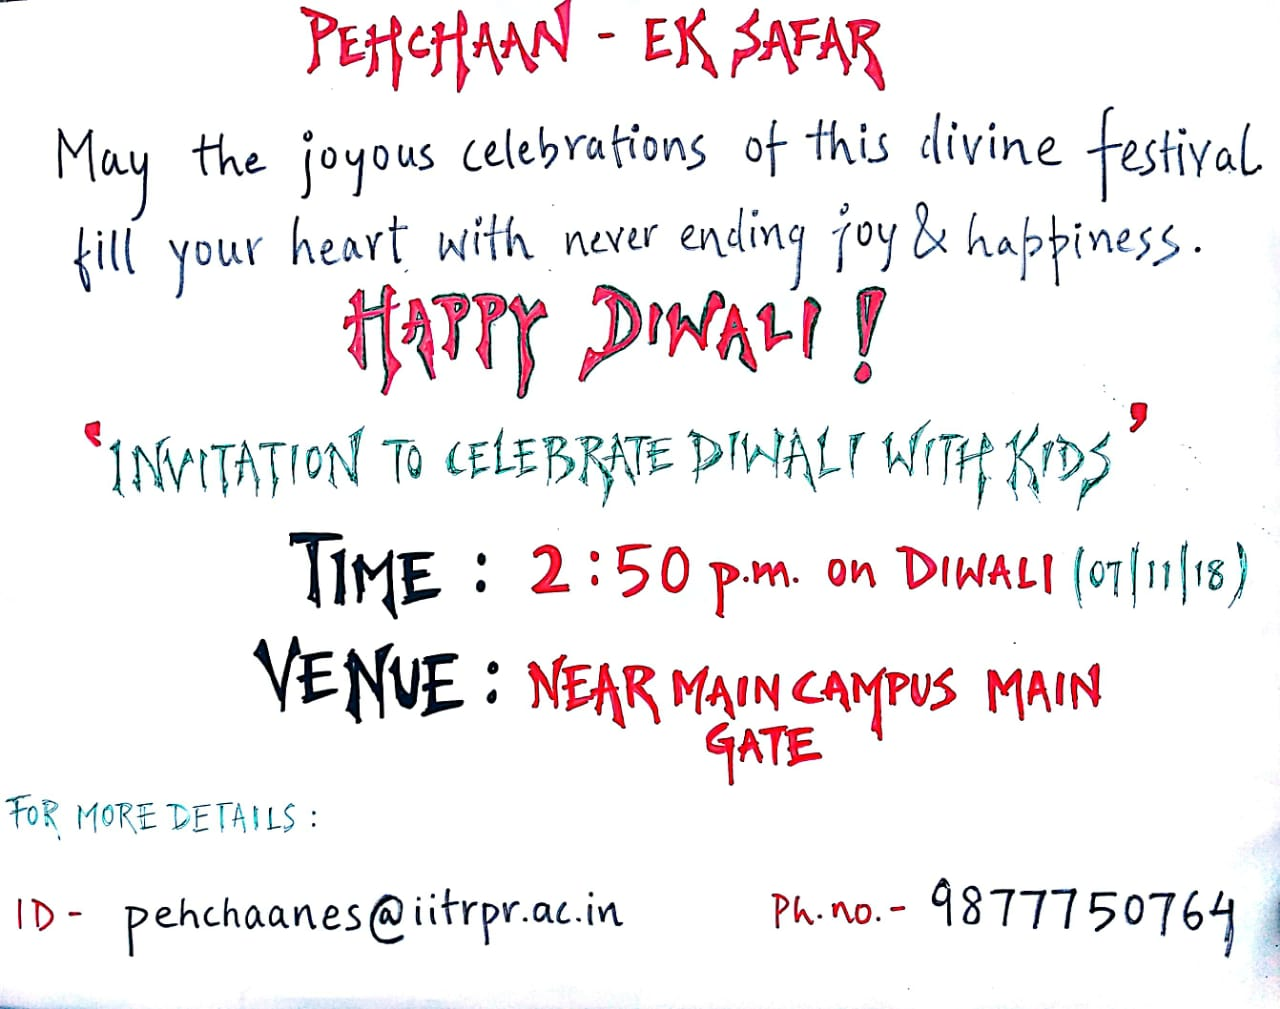 PEHCHAAN - EK SAFAR
May the joyous celebrations of this divine festival
fill your heart with never ending joy & happiness.
HAPPY DIWALI!
'INVITATION TO CELEBRATE DIWALI WITH KIDS'
TIME : 2:50 p.m. on DIWALI (07/11/18)
VENUE : NEAR MAIN CAMPUS MAIN
GATE
FOR MORE DETAILS :
ID - pehchaanes@iitrpr.ac.in Ph.no.- 9877750764